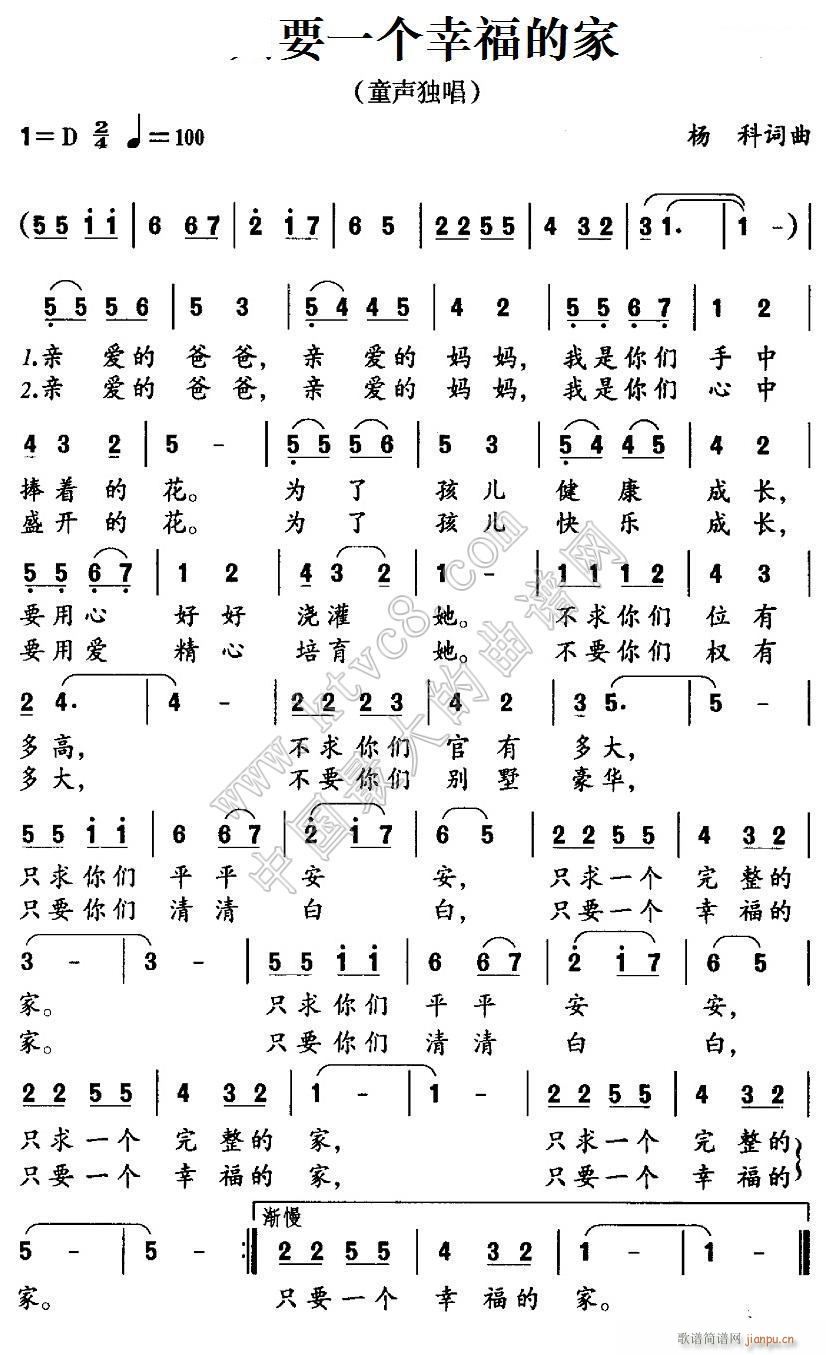 要一个幸福的家
（童声独唱）
1=D 2/4 ♩=100 杨 科词曲
(5 5 i i | 6 6 7 | 2 i 7 | 6 5 | 2 2 5 5 | 4 3 2 | 3 1. | 1 -) |
5 5 5 6 | 5 3 | 5 4 4 5 | 4 2 | 5 5 6 7 | 1 2 |
1.亲 爱的 爸爸, 亲 爱的 妈妈, 我是你们 手中
2.亲 爱的 爸爸, 亲 爱的 妈妈, 我是你们 心中
4 3 2 | 5 - | 5 5 5 6 | 5 3 | 5 4 4 5 | 4 2 |
捧着的 花。 为 了 孩儿 健 康 成长,
盛开的 花。 为 了 孩儿 快 乐 成长,
5 5 6 7 | 1 2 | 4 3 2 | 1 - | 1 1 1 2 | 4 3 |
要用心 好好 浇灌 她。 不求你们 位有
要用爱 精心 培育 她。 不要你们 权有
2 4. | 4 - | 2 2 2 3 | 4 2 | 3 5. | 5 - |
多高, 不求你们 官有 多大,
多大, 不要你们 别墅 豪华,
5 5 i i | 6 6 7 | 2 i 7 | 6 5 | 2 2 5 5 | 4 3 2 |
只求你们 平平 安 安, 只求一个 完整的
只要你们 清清 白 白, 只要一个 幸福的
3 - | 3 - | 5 5 i i | 6 6 7 | 2 i 7 | 6 5 |
家。 只求你们 平平 安 安,
家。 只要你们 清清 白 白,
2 2 5 5 | 4 3 2 | 1 - | 1 - | 2 2 5 5 | 4 3 2 |
只求一个 完整的 家, 只求一个 完整的
只要一个 幸福的 家, 只要一个 幸福的
渐慢
5 - | 5 - :| 2 2 5 5 | 4 3 2 | 1 - | 1 - ‖
家。 只要一个 幸福的 家。
www.ktvc8.com
中国最大的曲谱网
歌谱简谱网
jianpu.cn